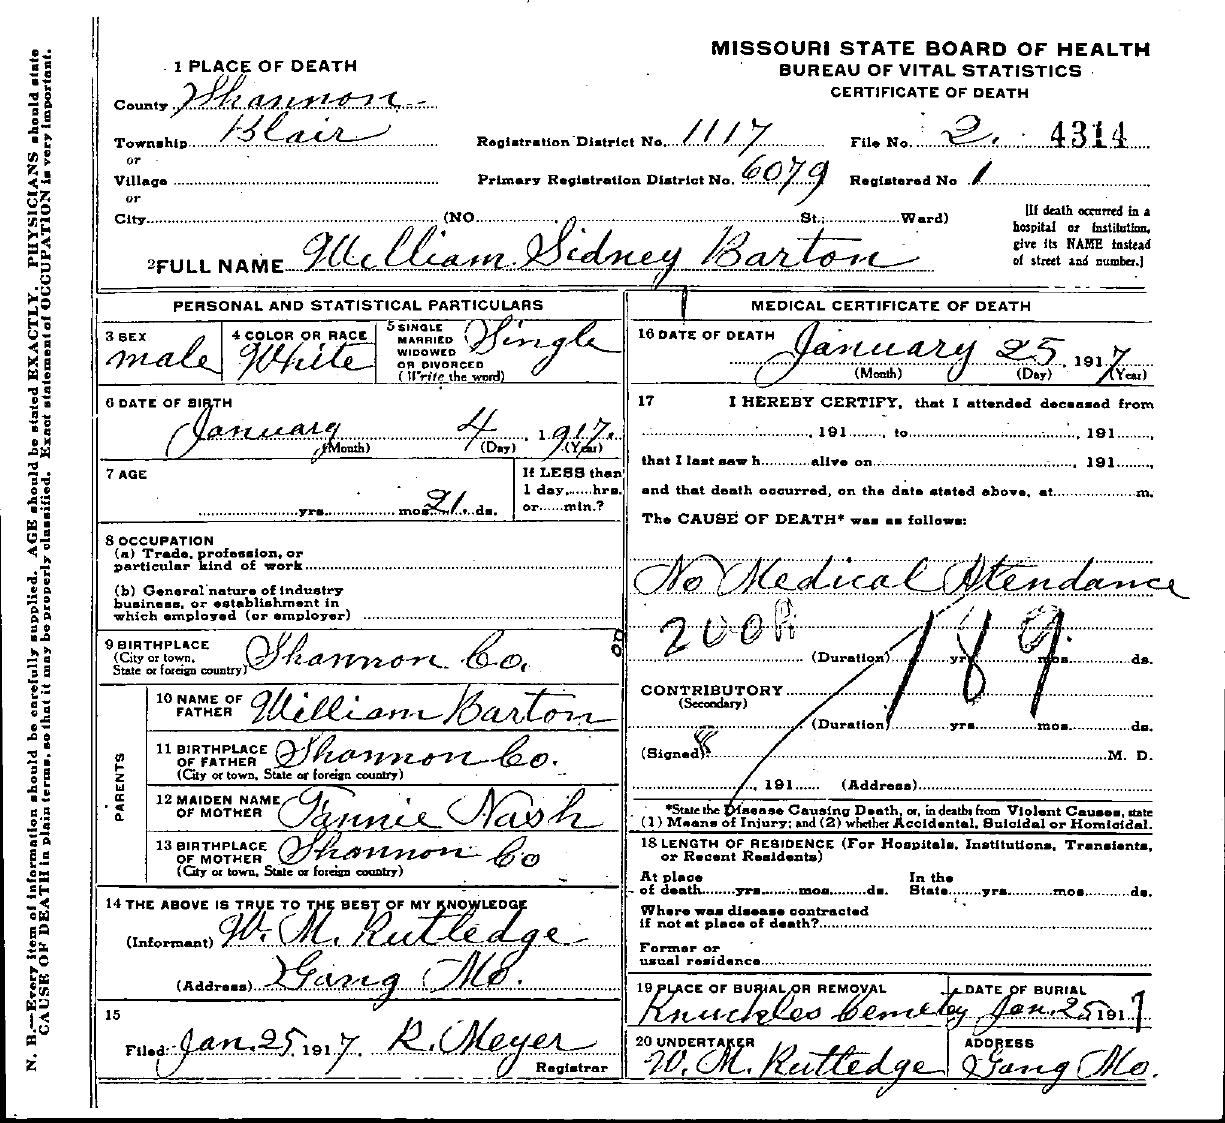 MISSOURI STATE BOARD OF HEALTH
BUREAU OF VITAL STATISTICS
CERTIFICATE OF DEATH
1 PLACE OF DEATH
County Shannon
Township Blair
or
Village
or
City (NO. St.; Ward)
Registration District No. 1117 File No. 2. 4314
Primary Registration District No. 6079 Registered No 1
[If death occurred in a
hospital or institution,
give its NAME instead
of street and number.]
2 FULL NAME William Sidney Barton
PERSONAL AND STATISTICAL PARTICULARS
3 SEX
male
4 COLOR OR RACE
White
5 SINGLE
MARRIED
WIDOWED
OR DIVORCED
(Write the word)
Single
6 DATE OF BIRTH
January 4, 1917.
(Month) (Day) (Year)
7 AGE
yrs. mos. 21 ds.
If LESS than
1 day, hrs.
or min.?
8 OCCUPATION
(a) Trade, profession, or
particular kind of work
(b) General nature of industry
business, or establishment in
which employed (or employer)
9 BIRTHPLACE
(City or town,
State or foreign country)
Shannon Co.
PARENTS
10 NAME OF
FATHER William Barton
11 BIRTHPLACE
OF FATHER Shannon Co.
(City or town, State or foreign country)
12 MAIDEN NAME
OF MOTHER Fannie Nash
13 BIRTHPLACE
OF MOTHER Shannon Co
(City or town, State or foreign country)
14 THE ABOVE IS TRUE TO THE BEST OF MY KNOWLEDGE
(Informant) W. M. Rutledge
(Address) Gang Mo.
15
Filed Jan. 25, 1917. R. Meyer
Registrar
MEDICAL CERTIFICATE OF DEATH
16 DATE OF DEATH
January 25, 1917
(Month) (Day) (Year)
17 I HEREBY CERTIFY, that I attended deceased from
, 191 , to , 191 ,
that I last saw h alive on , 191 ,
and that death occurred, on the date stated above, at m.
The CAUSE OF DEATH* was as follows:
No Medical Attendance
189.
(Duration) yrs. mos. ds.
CONTRIBUTORY
(Secondary)
(Duration) yrs. mos. ds.
(Signed) M. D.
, 191 (Address)
*State the Disease Causing Death, or, in deaths from Violent Causes, state
(1) Means of Injury; and (2) whether Accidental, Suicidal or Homicidal.
18 LENGTH OF RESIDENCE (For Hospitals, Institutions, Transients,
or Recent Residents)
At place
of death yrs. mos. ds.
In the
State yrs. mos. ds.
Where was disease contracted
if not at place of death?
Former or
usual residence
19 PLACE OF BURIAL OR REMOVAL
Knuckles Cemetey
DATE OF BURIAL
Jan. 25 1917
20 UNDERTAKER
W. M. Rutledge
ADDRESS
Gang Mo.
N. B.—Every item of information should be carefully supplied. AGE should be stated EXACTLY. PHYSICIANS should state
CAUSE OF DEATH in plain terms, so that it may be properly classified. Exact statement of OCCUPATION is very important.